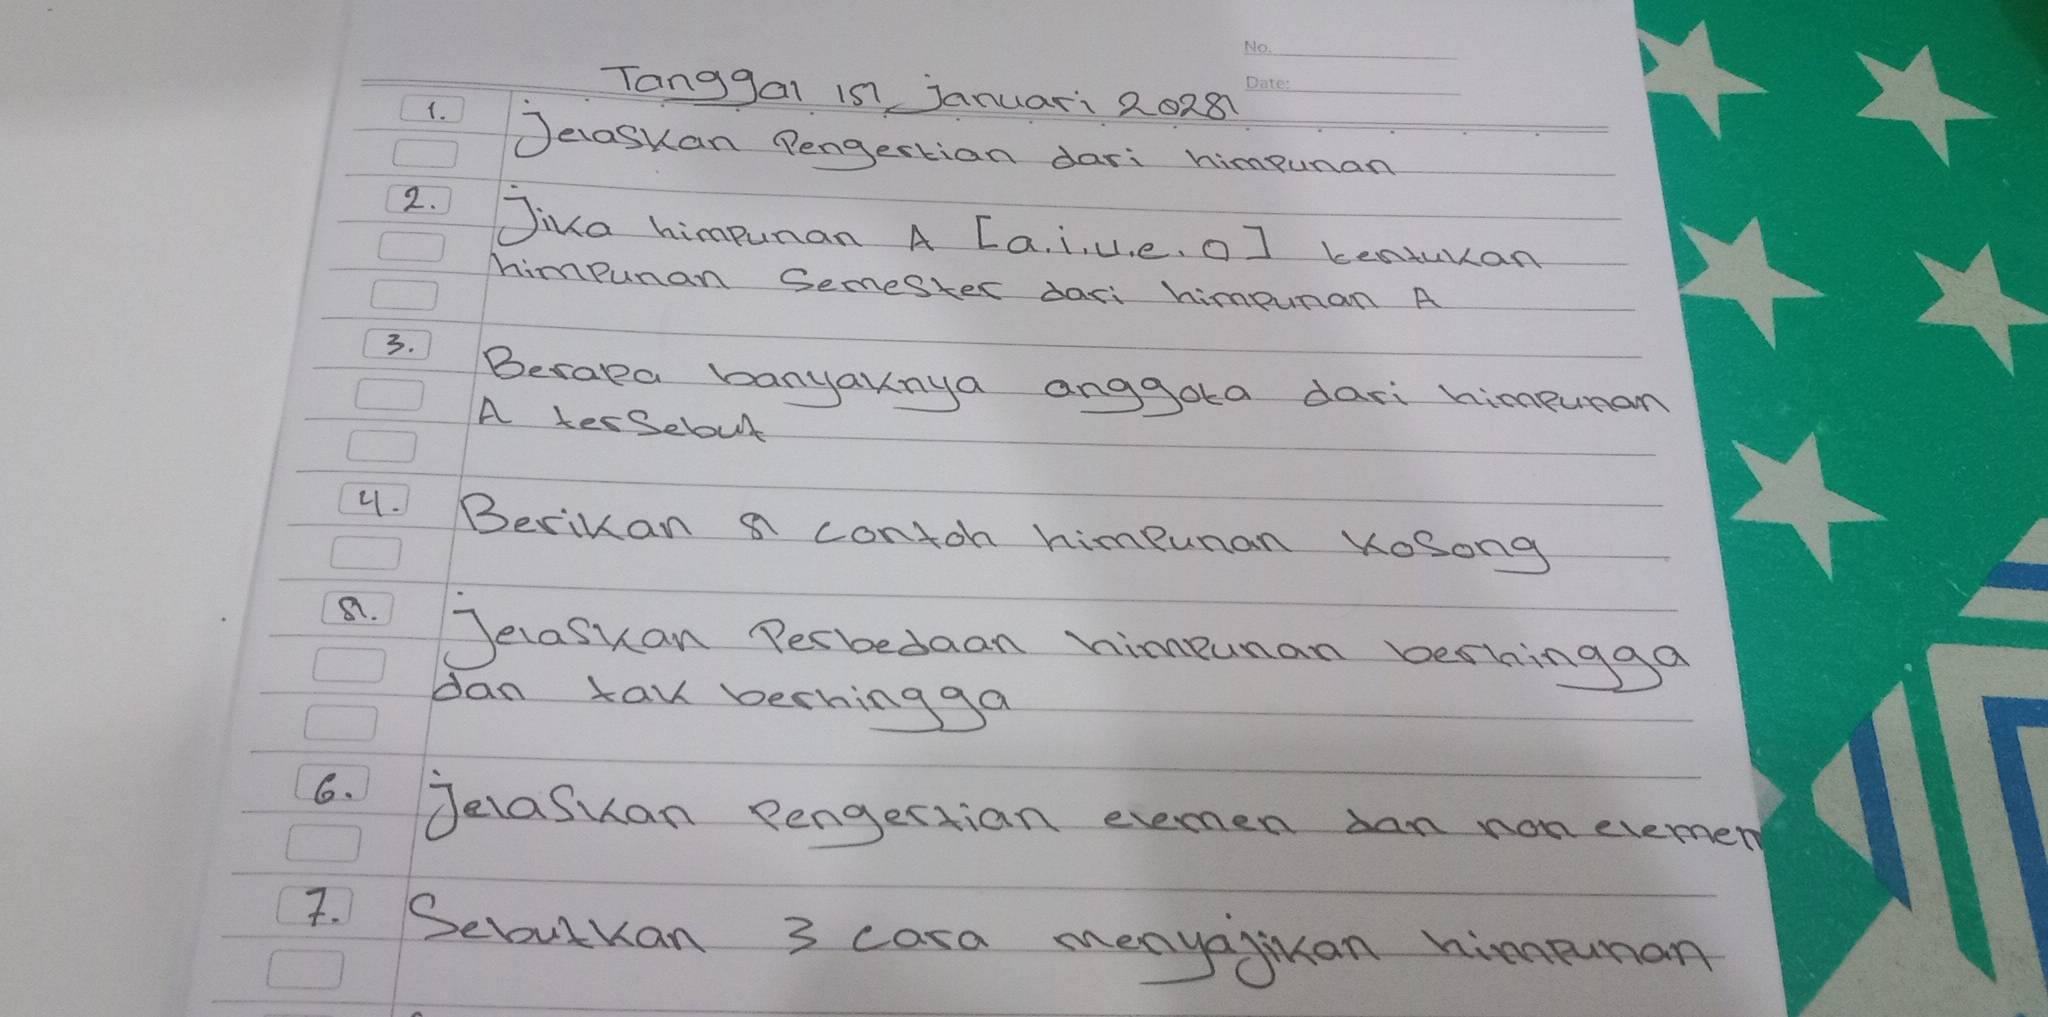 No.
Date:
Tanggal 15, januari 2025
1. Jelaskan Pengertian dari himpunan
2. Jika himpunan A [a.i.u.e.o] tentukan
himpunan Semester dari himpunan A
3. Berapa banyaknya anggota dari himpunan
A tersebut
4. Berikan 5 contoh himpunan kosong
5. Jelaskan Perbedaan himpunan berhingga
dan tak berhingga
6. Jelaskan Pengertian elemen dan non elemen
7. Sebutkan 3 cara menyajikan himpunan